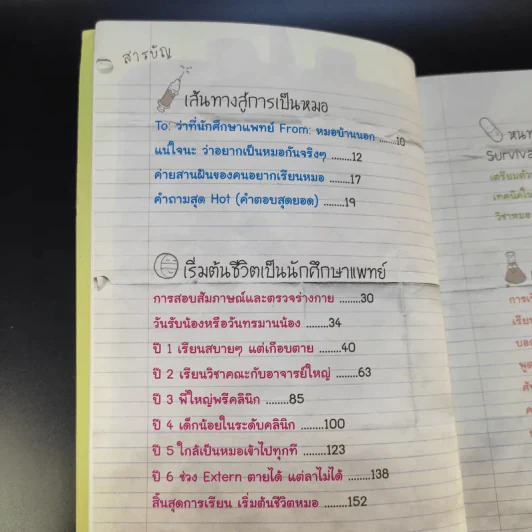 สารบัญ
เส้นทางสู่การเป็นหมอ
To: ว่าที่นักศึกษาแพทย์ From: หมอบ้านนอก ........10
แน่ใจนะ ว่าอยากเป็นหมอกันจริงๆ ........12
ค่ายสานฝันของคนอยากเรียนหมอ ........17
คำถามสุด Hot (คำตอบสุดยอด) ........19
เริ่มต้นชีวิตเป็นนักศึกษาแพทย์
การสอบสัมภาษณ์และตรวจร่างกาย ........30
วันรับน้องหรือวันทรมานน้อง ........34
ปี 1 เรียนสบายๆ แต่เกือบตาย ........40
ปี 2 เรียนวิชาคณะกับอาจารย์ใหญ่ ........63
ปี 3 พี่ใหญ่พรีคลินิก ........85
ปี 4 เด็กน้อยในระดับคลินิก ........100
ปี 5 ใกล้เป็นหมอเข้าไปทุกที ........123
ปี 6 ช่วง Extern ตายได้ แต่ลาไม่ได้ ........138
สิ้นสุดการเรียน เริ่มต้นชีวิตหมอ ........152